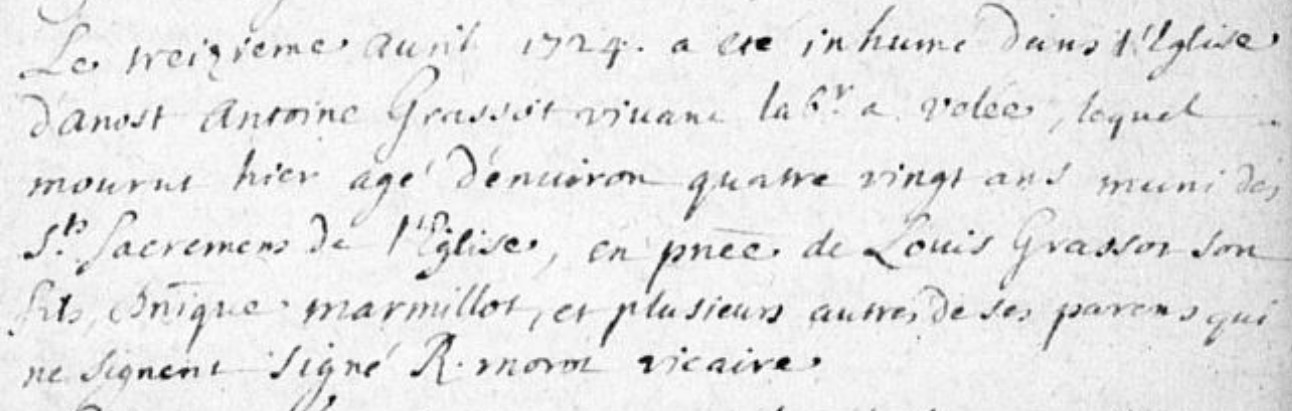 Le treizieme auril 1724. a ete inhumé dans l'Eglise
d'anost antoine Grassot viuant lab.r a velée, lequel
mourut hier agé d'enuiron quatre vingt ans muni des
S.ts Sacremens de l'Eglise, en pnce de Louis Grassot son
fils, Dnique marmillot, et plusieurs autres de ses parens qui
ne signent signé R. morot vicaire